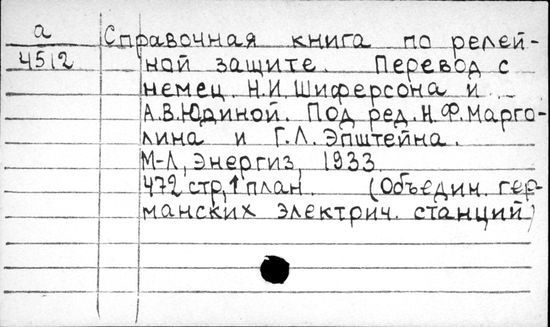 а Справочная книга по релей-
4512 ной защите. Перевод с
немец. Н.И.Шиферсона и
А.В.Юдиной. Под ред. Н.Ф.Марго-
лина и Г.Л.Эпштейна.
М-Л, Энергиз, 1933.
472 стр, 1 план. (Объедин. гер-
манских электрич. станций)